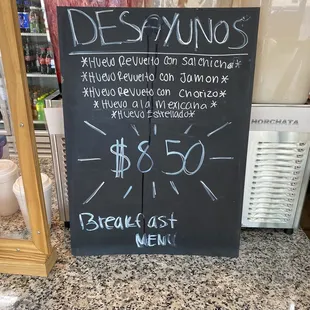 DESAYUNOS
*Huevo Revuelto con Salchicha*
*Huevo Revuelto con Jamon*
*Huevo Revuelto con Chorizo*
*Huevo a la Mexicana*
*Huevo Estrellado*
$8.50
Breakfast
MENU
HORCHATA